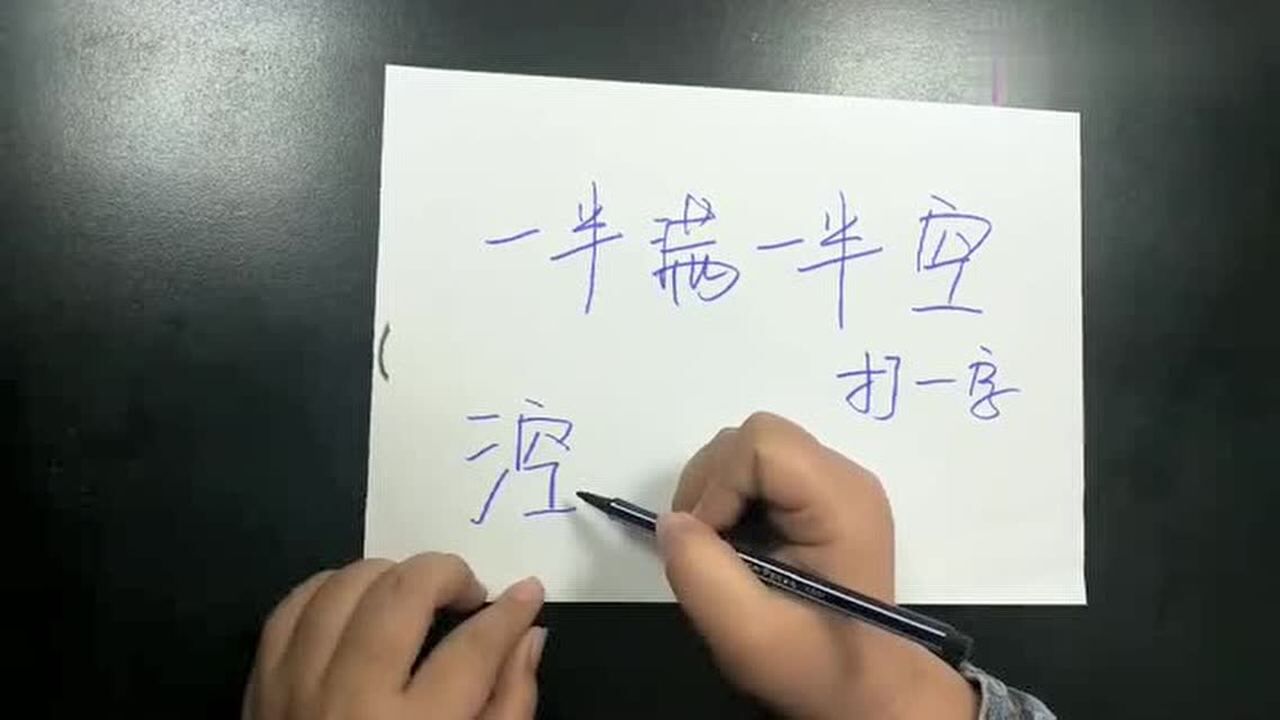 一半满一半空
打一字
涳